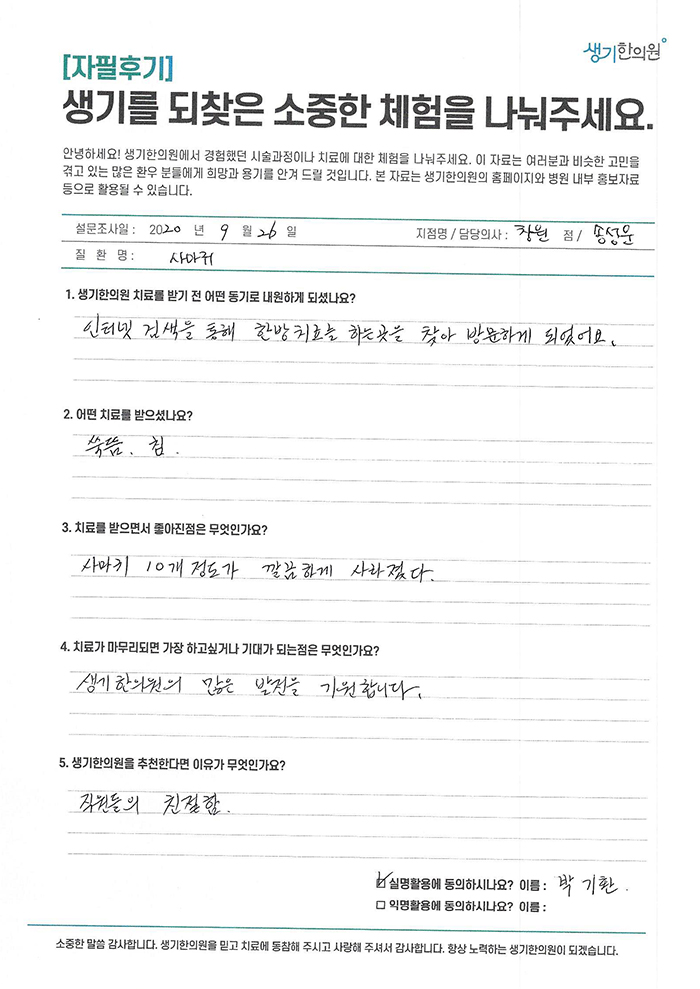 생기한의원
[자필후기]
생기를 되찾은 소중한 체험을 나눠주세요.
안녕하세요! 생기한의원에서 경험했던 시술과정이나 치료에 대한 체험을 나눠주세요. 이 자료는 여러분과 비슷한 고민을
겪고 있는 많은 환우 분들에게 희망과 용기를 안겨 드릴 것입니다. 본 자료는 생기한의원의 홈페이지와 병원 내부 홍보자료
등으로 활용될 수 있습니다.
설문조사일 : 2020 년 9 월 26 일 지점명 / 담당의사 : 창원 점 / 송성문
질 환 명 : 사마귀
1. 생기한의원 치료를 받기 전 어떤 동기로 내원하게 되셨나요?
인터넷 검색을 통해 한방치료를 하는곳을 찾아 방문하게 되었어요.
2. 어떤 치료를 받으셨나요?
쑥뜸. 침.
3. 치료를 받으면서 좋아진점은 무엇인가요?
사마귀 10개 정도가 깔끔하게 사라졌다.
4. 치료가 마무리되면 가장 하고싶거나 기대가 되는점은 무엇인가요?
생기한의원의 많은 발전을 기원합니다.
5. 생기한의원을 추천한다면 이유가 무엇인가요?
직원들의 친절함.
☑ 실명활용에 동의하시나요? 이름 : 박기환.
□ 익명활용에 동의하시나요? 이름 :
소중한 말씀 감사합니다. 생기한의원을 믿고 치료에 동참해 주시고 사랑해 주셔서 감사합니다. 항상 노력하는 생기한의원이 되겠습니다.